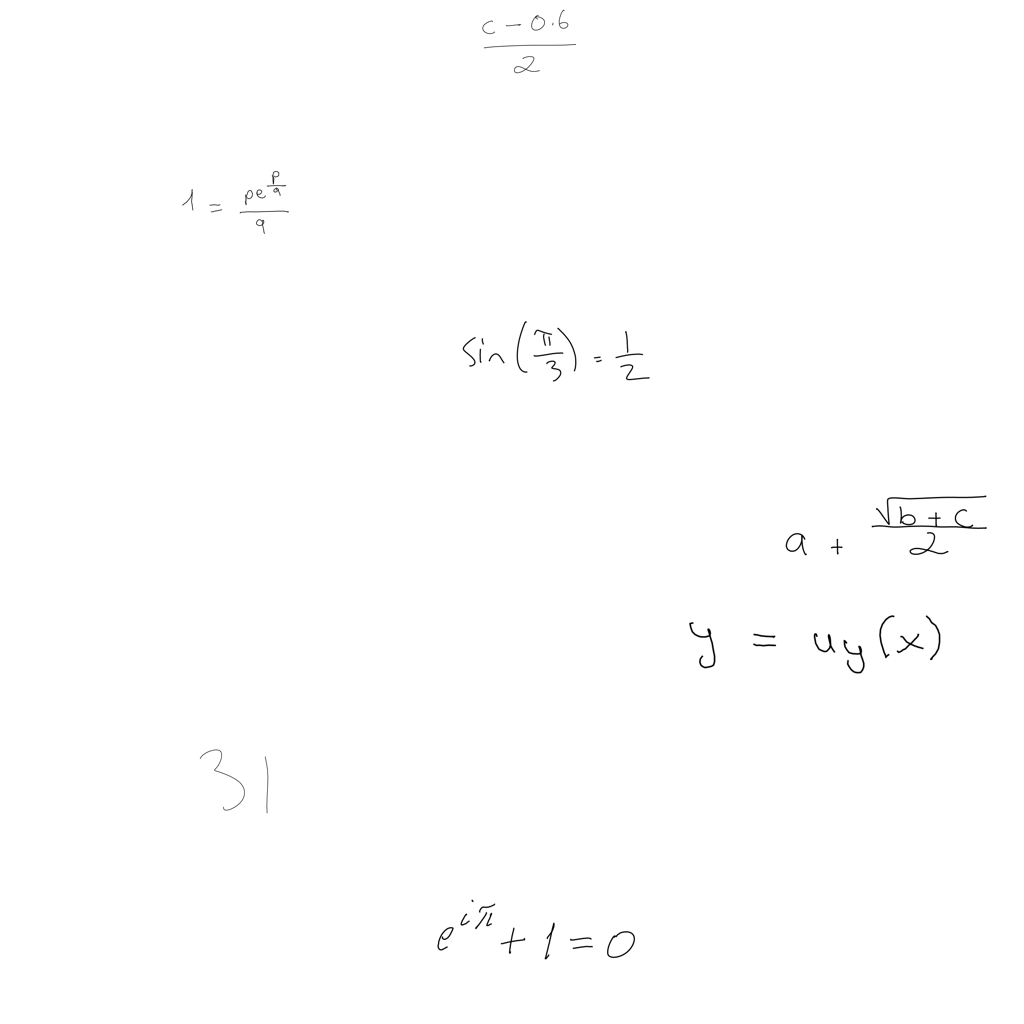 \frac{c-0.6}{2}
1 = \frac{pe^{\frac{p}{q}}}{q}
\sin\left(\frac{\pi}{3}\right) = \frac{1}{2}
a + \frac{\sqrt{b+c}}{2}
y = uy(x)
31
e^{i\pi} + 1 = 0